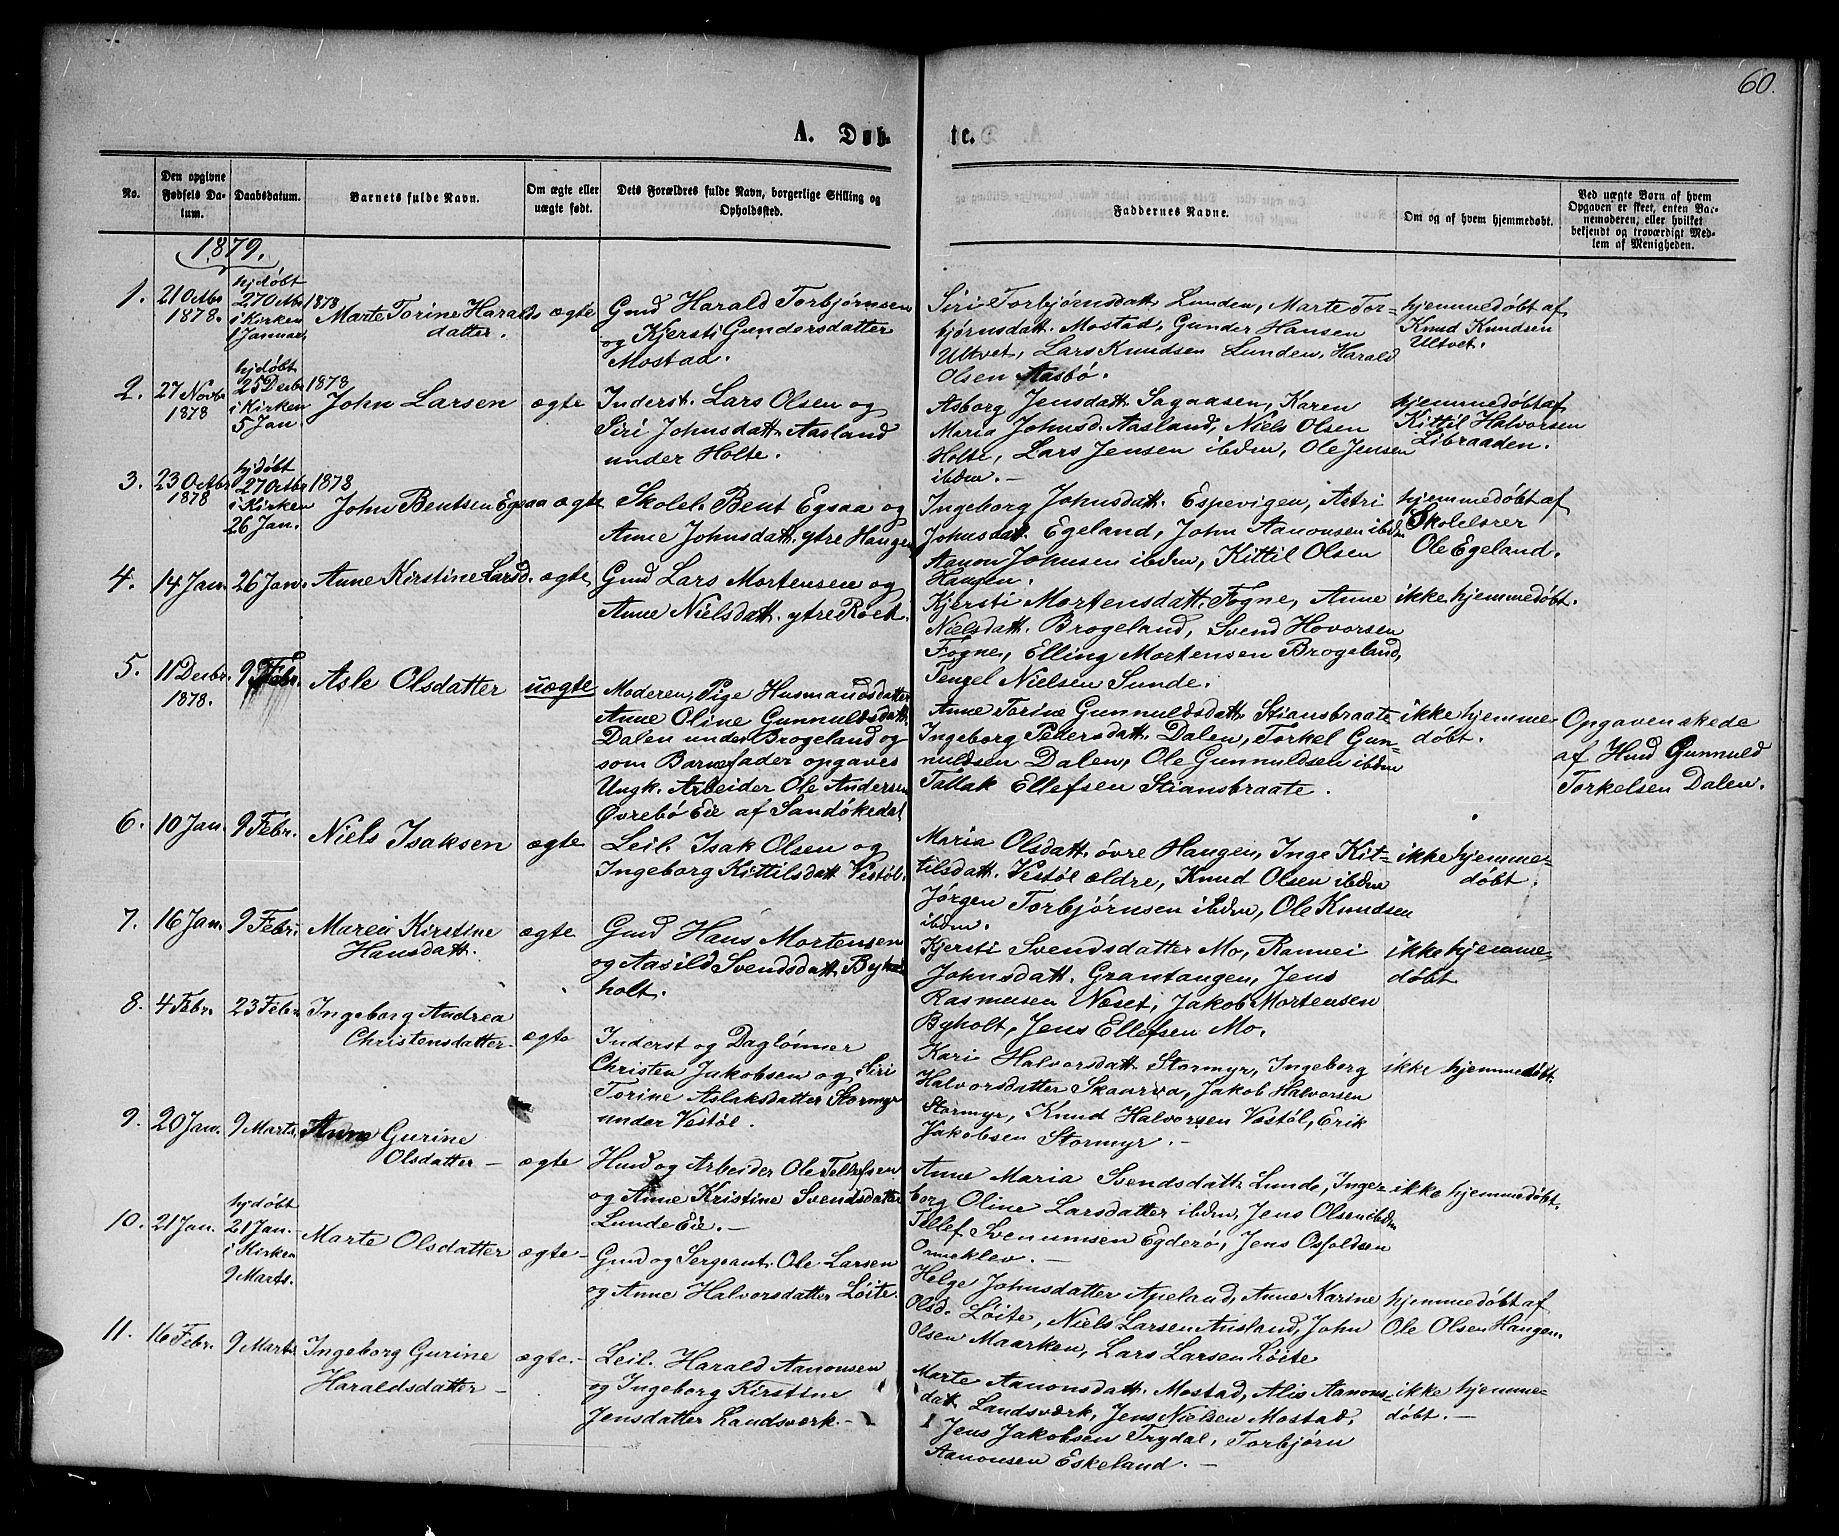 60.
A. Døbte.
No.
Den opgivne Fødsels Datum.
Daabsdatum.
Barnets fulde Navn.
Om ægte eller uægte født.
Dets Forældres fulde Navn, borgerlige Stilling og Opholdssted.
Faddernes Navne.
Om og af hvem hjemmedøbt.
Ved uægte Børn af hvem Opgaven er skeet, enten Barnemoderen, eller hvilket bekjendt og troværdigt Medlem af Menigheden.
1879.
1.
21 Octbr
1878.
hjdøbt
27 Octbr 1878
i Kirken
1 Januar
Marte Torine Haralds
datter.
ægte
Gmd Harald Torbjørnsen
og Kjersti Gundersdatter
Mostad.
Siri Torbjørnsdatt. Lunden, Marte Tor-
bjørnsdatt. Mostad, Gunder Hansen
Ultvet, Lars Knudsen Lunden, Harald
Olsen Aasbø.
hjemmedøbt af
Knud Knudsen
Ultvet.
2.
27 Novbr
1878
hjdøbt
25 Decbr 1878
i Kirken
5 Jan.
John Larsen
ægte
Inderst. Lars Olsen og
Siri Johnsdatt. Aasland
under Holte.
Asborg Jensdatt. Sagaasen, Karen
Maria Johnsd. Aasland, Niels Olsen
Holte, Lars Jensen ibdm, Ole Jensen
ibdm. -
hjemmedøbt af
Kittil Halvorsen
Libraaden.
3.
23 Octbr
1878
hjdøbt
27 Octbr 1878
i Kirken
26 Jan.
John Bentsen Egsaa
ægte
Skolel. Bent Egsaa og
Anne Johnsdatt. ytre Haugen
Ingeborg Johnsdatt. Espevigen, Astri
Johnsdatt. Egeland, John Aanonsen ibdm
Aanon Johnsen ibdm, Kittil Olsen
Haugen.
hjemmedøbt af
Skolelærer
Ole Egeland.
4.
14 Jan.
26 Jan.
Anne Kirstine Larsd.
ægte
Gmd Lars Mortensen og
Anne Nielsdatt. ytre Roed.
Kjersti Mortensdatt. Fogne, Anne
Nielsdatt. Brogeland, Svend Hovorsen
Fogne, Elling Mortensen Brogeland,
Tengel Nielsen Sunde.
ikke hjemmedøbt.
5.
11 Decbr.
1878.
9 Febr.
Asle Olsdatter
uægte
Moderen, Pige Husmandsdatter
Anne Oline Gunnuldsdatt.
Dalen under Brogeland og
som Barnefader opgaves
Ungk. Arbeider Ole Andersen
Øvrebö Eie af Sandökedal
Anne Torine Gunnuldsdatt. Stiansbraate
Ingeborg Pedersdatt. Dalen, Torkel Gun-
nuldsen Dalen, Ole Gunnuldsen ibdm
Tallak Ellefsen Stiansbraate.
ikke hjemme
døbt.
Opgaven skede
af Hmd Gunnuld
Torkelsen Dalen.
6.
10 Jan.
9 Febr.
Niels Isaksen
ægte
Leil. Isak Olsen og
Ingeborg Kittilsdatt. Vestøl.
Maria Olsdatt. øvre Haugen, Inge Kit-
tilsdatt. Vestøl ældre, Knud Olsen ibdm
Jørgen Torbjørnsen ibdm, Ole Knudsen
ibdm.
ikke hjemme-
døbt.
7.
16 Jan.
9 Febr.
Maren Kirstine
Hansdatt.
ægte
Gmd Hans Mortensen
og Aasild Svendsdatt. By
holt.
Kjersti Svendsdatter Mo, Rannei
Johnsdatt. Grantangen, Jens
Rasmusen Næset, Jakob Mortensen
Byholt, Jens Ellefsen Mo.
ikke hjemme-
døbt
8.
4 Febr.
23 Febr
Ingeborg Andrea
Christensdatter
ægte
Inderst og Daglønner
Christen Jakobsen og Siri
Torine Aslaksdatter Stormyr
under Vestöl.
Kari Halvorsdatt. Stormyr, Ingeborg
Halvorsdatter Skaarva, Jakob Halvorsen
Stormyr, Knud Halvorsen Vestöl, Erik
Jakobsen Stormyr. -
ikke hjemmedöbt.
9.
20 Jan.
9 Marts
Anne Gurine
Olsdatter -
ægte
Hmd og Arbeider Ole Tellefsen
og Anne Kristine Svendsdatter
Lunde Eie. -
Anne Maria Svendsdatt. Lunde, Inge-
borg Oline Larsdatter ibdm, Jens Olsen ibdm
Tellef Svenumsen Egderö, Jens Osfoldsen
Ormeklev. -
ikke hjemmedøbt.
10.
21 Jan.
hjdøbt
21 Jan.
i Kirken
9 Marts.
Marte Olsdatter
ægte -
Gmd og Sergeant Ole Larsen
og Anne Halvorsdatter Löite.
Helge Johnsdatter Apeland, Anne Karine
Olsd. Löite, Niels Larsen Ausland, John
Olsen Maarken, Lars Larsen Löite
hjemmedøbt af
Ole Olsen Haugen.
11.
16 Febr.
9 Marts
Ingeborg Gurine
Haraldsdatter -
ægte. -
Leil. Harald Aanonsen
og Ingeborg Kirstine
Jensdatter Landsværk. -
Marte Aanonsdatt. Mostad, Alis Aanons-
datt. Landsværk, Jens Nielsen Mostad,
Jens Jakobsen Trydal, Torbjørn
Aanonsen Eskeland. -
ikke hjemme-
døbt. -